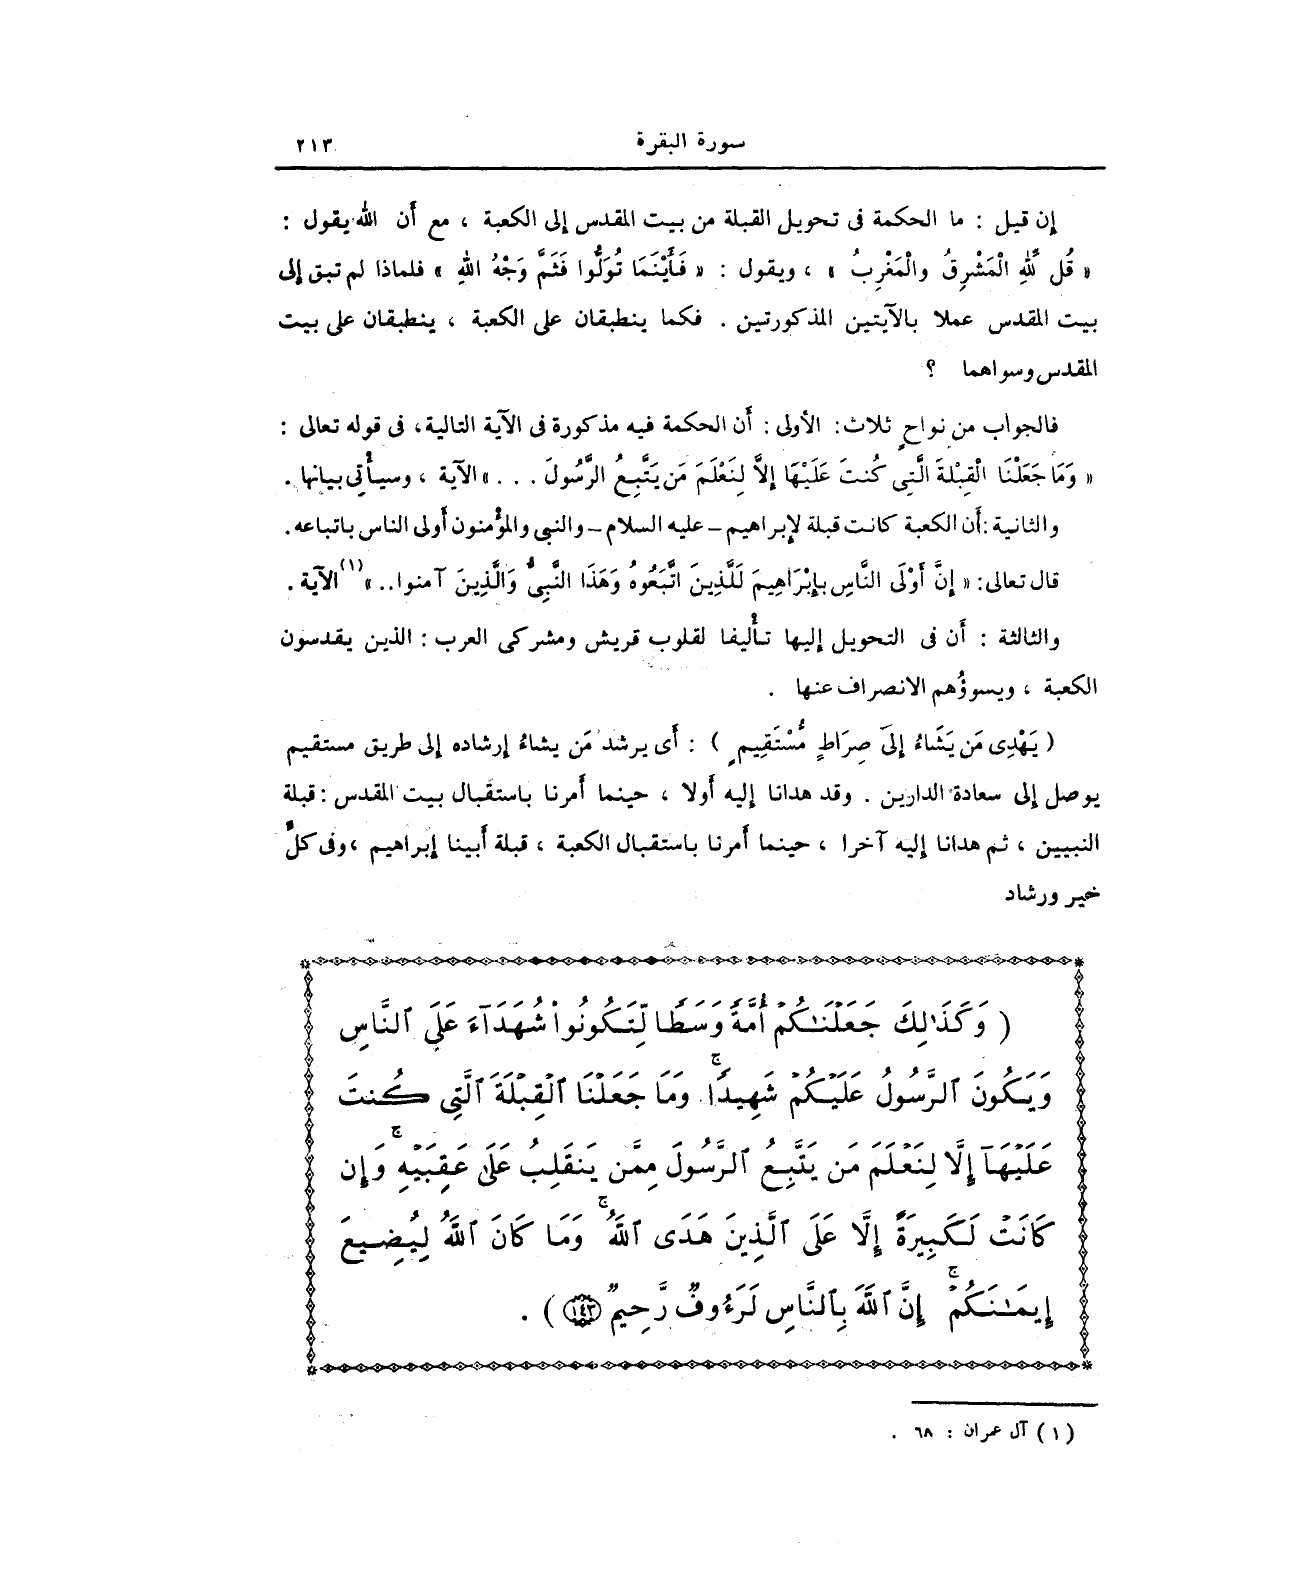 سورة البقرة ٢١٣
إن قيل : ما الحكمة فى تحويل القبلة من بيت المقدس إلى الكعبة ، مع أن الله يقول :
« قُل لِّلهِ الْمَشْرِقُ والْمَغْرِبُ » ، ويقول : « فَأَيْنَمَا تُوَلُّوا فَثَمَّ وَجْهُ اللهِ » فلماذا لم تبق إلى
بيت المقدس عملا بالآيتين المذكورتين . فكما ينطبقان على الكعبة ، ينطبقان على بيت
المقدس وسواهما ؟
فالجواب من نواحٍ ثلاث : الأولى : أن الحكمة فيه مذكورة فى الآية التالية، فى قوله تعالى :
« وَمَا جَعَلْنَا الْقِبْلةَ الَّتِى كُنتَ عَلَيْهَا إلاَّ لِنَعْلَمَ مَن يَتَّبِعُ الرَّسُولَ . . . » الآية ، وسيأتى بيانها .
والثانية :أن الكعبة كانت قبلة لإبراهيم – عليه السلام – والنبى والمؤمنون أولى الناس باتباعه.
قال تعالى: « إنَّ أَوْلَى النَّاسِ بإبْرَاهِيمَ لَلَّذِينَ اتَّبَعُوهُ وَهَذَا النَّبِىُّ وَالَّذِينَ آمنوا.. »(١) الآية .
والثالثة : أن فى التحويل إليها تأليفا لقلوب قريش ومشركى العرب : الذين يقدسون
الكعبة ، ويسوؤُهم الانصراف عنها .
( يَهْدِى مَن يَشَاءُ إلىَ صِرَاطٍ مُّسْتَقِيمٍ ) : أى يرشد مَن يشاءُ إرشاده إلى طريق مستقيم
يوصل إلى سعادة الدارين . وقد هدانا إليه أولا ، حينما أمرنا باستقبال بيت المقدس : قبلة
النبيين ، ثم هدانا إليه آخرا ، حينما أمرنا باستقبال الكعبة ، قبلة أبينا إبراهيم ، وفى كلٍّ
خير ورشاد
( وَكَذَٰلِكَ جَعَلْنَٰكُمْ أُمَّةً وَسَطًا لِّتَكُونُواْ شُهَدَآءَ عَلَى ٱلنَّاسِ
وَيَكُونَ ٱلرَّسُولُ عَلَيْكُمْ شَهِيدًا ۚ وَمَا جَعَلْنَا ٱلْقِبْلَةَ ٱلَّتِى كُنتَ
عَلَيْهَآ إِلَّا لِنَعْلَمَ مَن يَتَّبِعُ ٱلرَّسُولَ مِمَّن يَنقَلِبُ عَلَىٰ عَقِبَيْهِ ۚ وَإِن
كَانَتْ لَكَبِيرَةً إِلَّا عَلَى ٱلَّذِينَ هَدَى ٱللَّهُ ۗ وَمَا كَانَ ٱللَّهُ لِيُضِيعَ
إِيمَٰنَكُمْ ۚ إِنَّ ٱللَّهَ بِٱلنَّاسِ لَرَءُوفٌ رَّحِيمٌ ١٤٣ ) .
(١) آل عمران : ٦٨ .